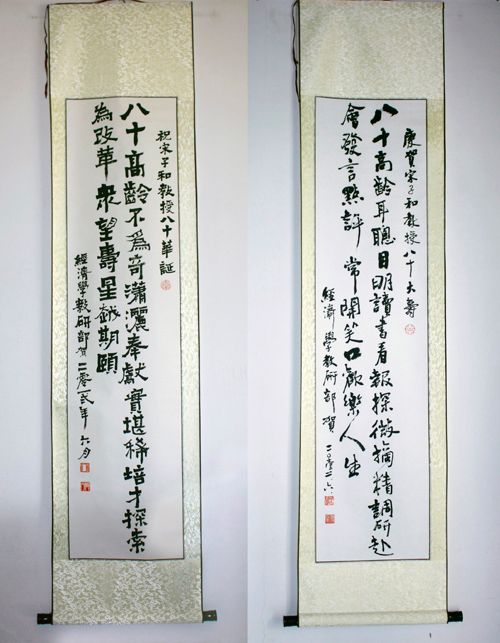 祝宋子和教授八十華誕
八十高齡不爲奇瀟灑奉獻實堪稀培才探索
為改革眾望壽星越期頤
經濟學教研部賀二零弍年六月
慶賀宋子和教授八十大壽
八十高齡耳聰目明讀書看報探微摘精調研赴
會發言點評常開笑口歡樂人生
經濟學教研部賀二〇〇二六